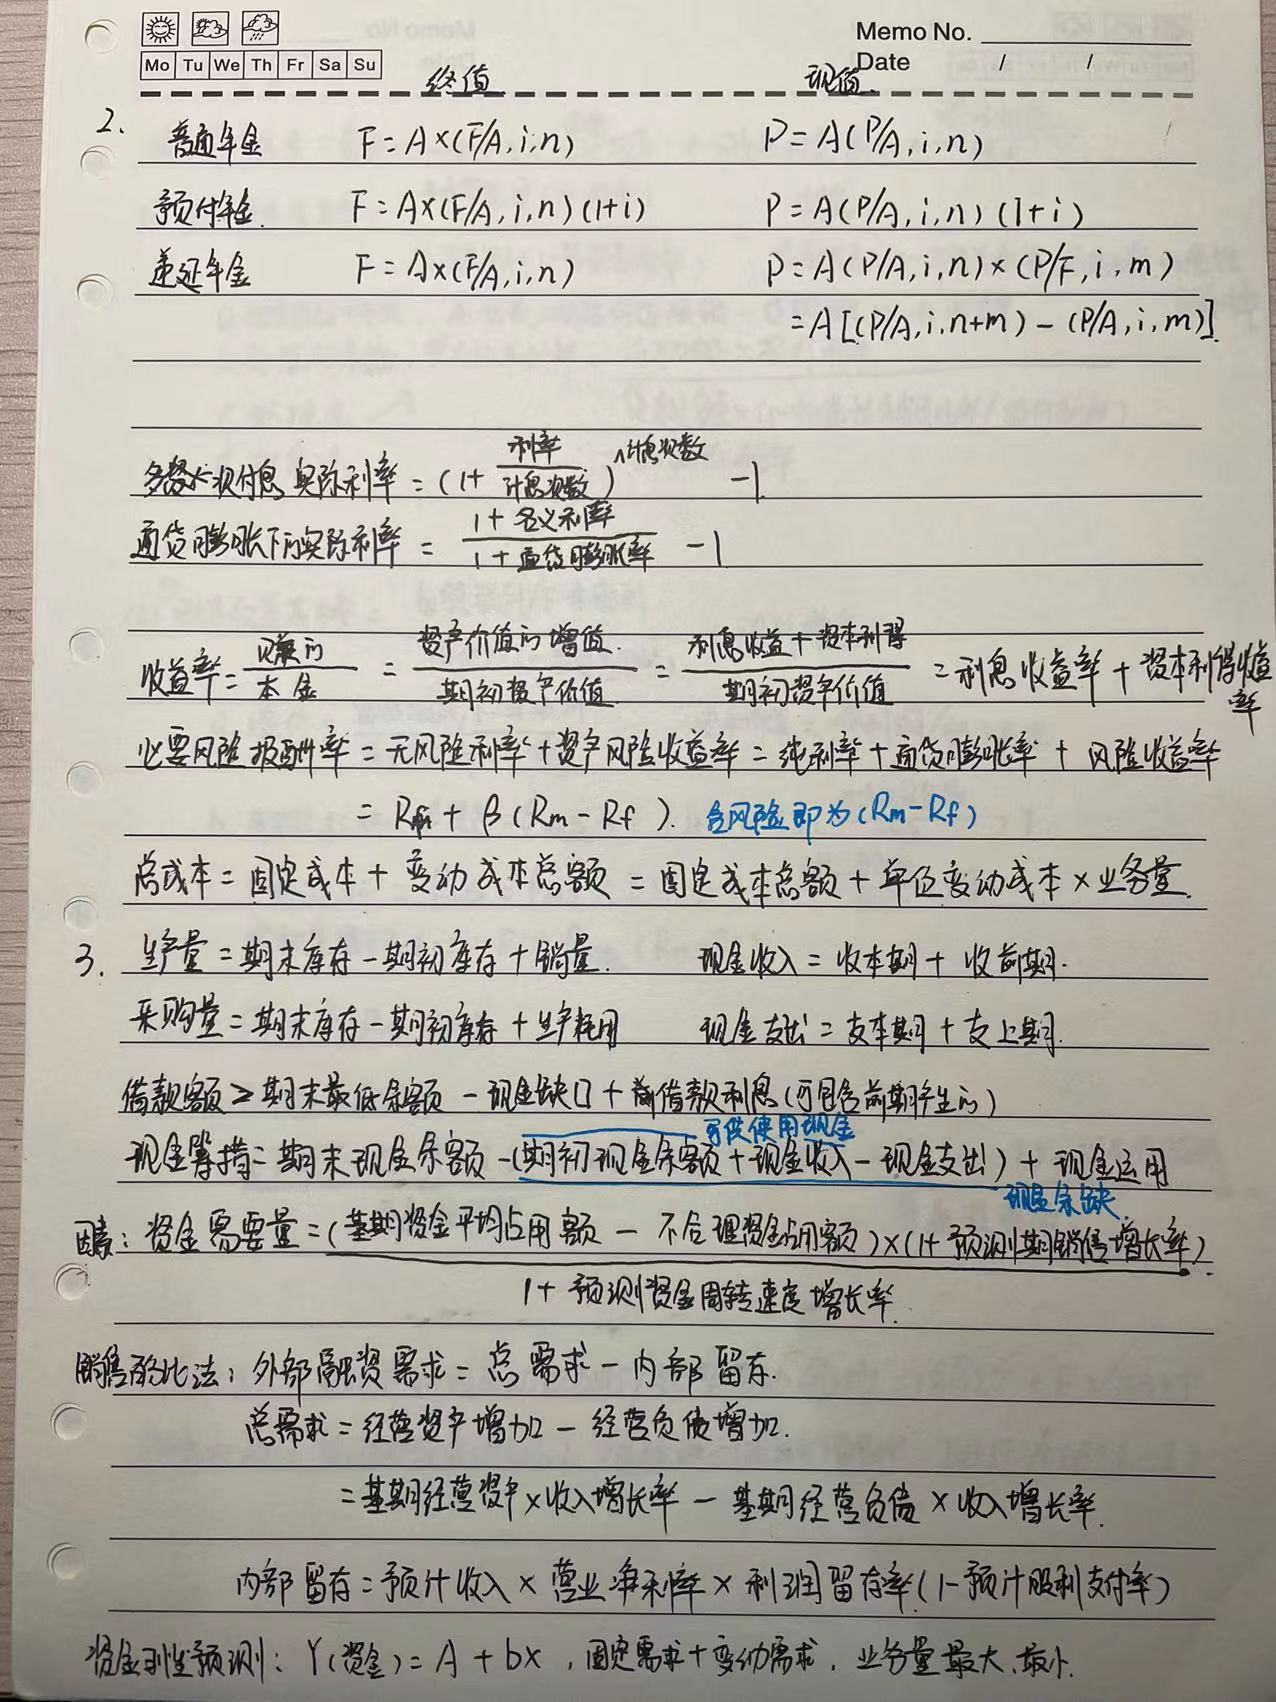 Memo No.
Mo Tu We Th Fr Sa Su
Date / /
终值 现值
2. 普通年金 F=A×(F/A,i,n) P=A(P/A,i,n)
预付年金 F=A×(F/A,i,n)(1+i) P=A(P/A,i,n)(1+i)
递延年金 F=A×(F/A,i,n) P=A(P/A,i,n)×(P/F,i,m)
=A[(P/A,i,n+m)-(P/A,i,m)]
次付息实际利率=(1+利率/计息次数)^计息次数 -1
通货膨胀下的实际利率=(1+名义利率)/(1+通货膨胀率) -1
收益率=赚的/本金=资产价值的增值/期初资产价值=(利息收益+资本利得)/期初资产价值=利息收益率+资本利得收益率
必要风险报酬率=无风险利率+资产风险收益率=纯利率+通货膨胀率+风险收益率
=Rf+β(Rm-Rf). 风险即为(Rm-Rf)
总成本=固定成本+变动成本总额=固定成本总额+单位变动成本×业务量.
3. 生产量=期末库存-期初库存+销量. 现金收入=收本期+收前期.
采购量=期末库存-期初库存+生产耗用 现金支出=支本期+支上期.
借款额≥期末最低余额-现金缺口+借款利息(可包含前期产生的)
可供使用现金
现金筹措=期末现金余额-(期初现金余额+现金收入-现金支出)+现金运用
现金余缺
因素:资金需要量=(基期资金平均占用额-不合理资金占用额)×(1+预测期销售增长率)
1+预测资金周转速度增长率.
销售百分比法:外部融资需求=总需求-内部留存.
总需求=经营资产增加-经营负债增加.
=基期经营资产×收入增长率-基期经营负债×收入增长率.
内部留存=预计收入×营业净利率×利润留存率(1-预计股利支付率)
资金习性预测:Y(资金)=A+bx,固定需求+变动需求,业务量最大、最小.